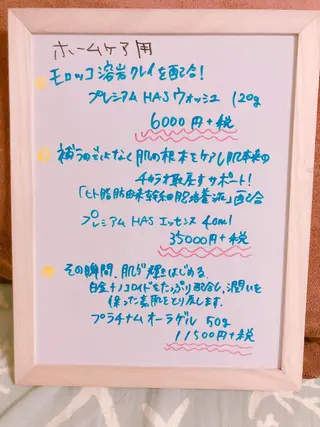 ホームケア用
モロッコ溶岩クレイを配合!
プレミアムHASウォッシュ 120g
6000円+税
補うのでなく肌の根本をケアし肌本来の
チカラを取戻すサポート!
「ヒト脂肪由来幹細胞培養液」配合
プレミアムHASエッセンス 40ml
35000円+税
その瞬間、肌が輝きはじめる。
白金ナノコロイドをたっぷり配合し、潤いを
保った素肌をとり戻します。
プラチナムオーラゲル 50g
11500円+税